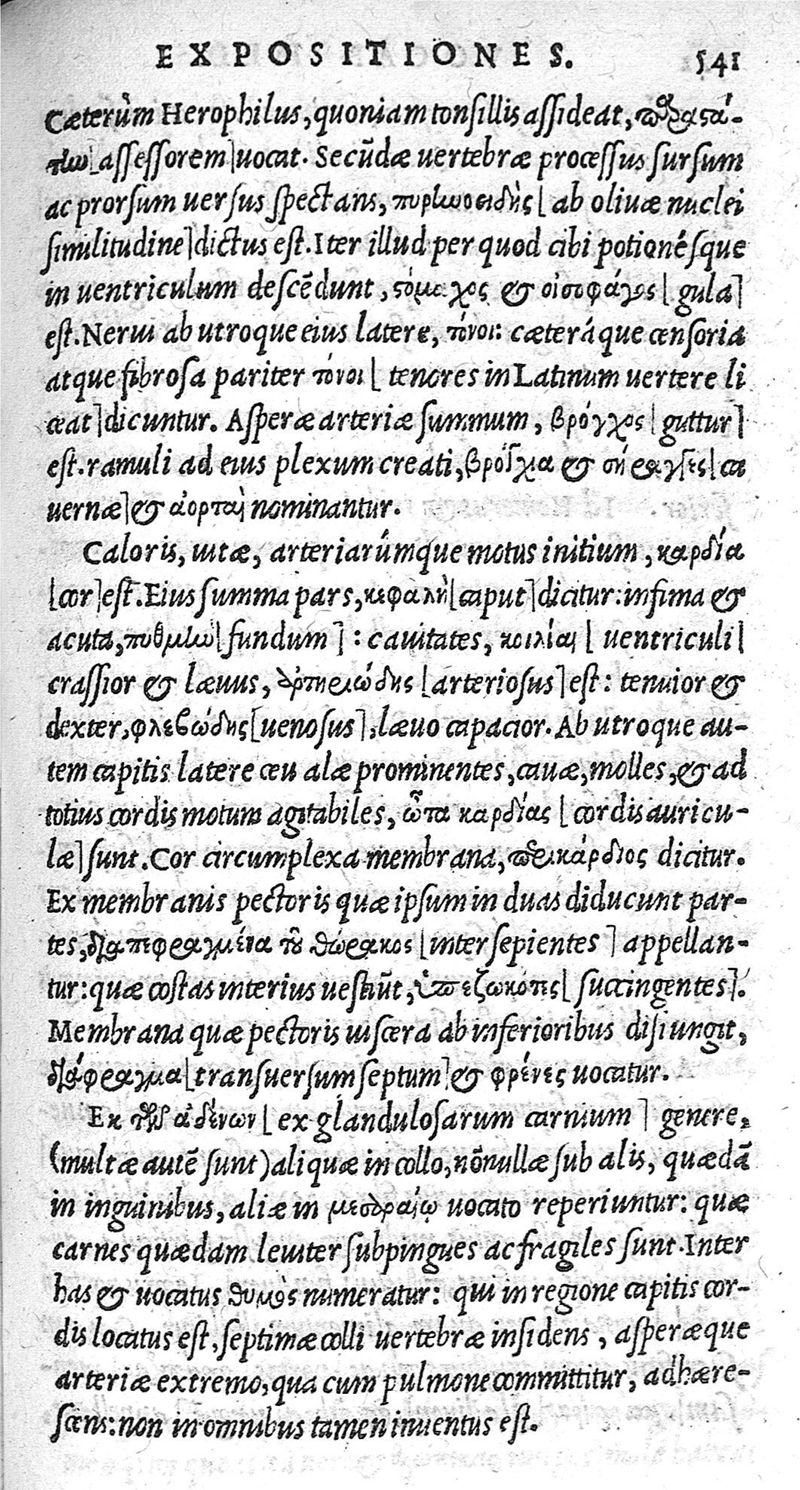 EXPOSITIONES. 541
Cæterùm Herophilus, quoniam tonsillis assideat, παραστά-
τίω [assessorem] uocat. Secũdæ uertebræ processus sursum
ac prorsum uersus spectans, πυρίωοειδὴς [ab oliuæ nuclei
similitudine] dictus est. Iter illud per quod cibi potionésque
in uentriculum descẽdunt, στόμαχος & οἰσοφάγος [gula]
est. Nerui ab utroque eius latere, τόνοι: cæteráque censoria
atque fibrosa pariter τόνοι [tenores in Latinum uertere li
ceat] dicuntur. Asperæ arteriæ summum, βρόγχος [guttur]
est. ramuli ad eius plexum creati, βρόγχια & σήραγγες [ca
uernæ] & ἀορταὶ nominantur.
Caloris, uitæ, arteriarúmque motus initium, καρδία
[cor] est. Eius summa pars, κεφαλὴ [caput] dicitur: infima &
acuta, πυθμίω [fundum]: cauitates, κοιλίαι [uentriculi]
crassior & læuus, ἀρτηριώδης [arteriosus] est: tenuior &
dexter, φλεβώδης [uenosus], læuo capacior. Ab utroque au-
tem capitis latere ceu alæ prominentes, cauæ, molles, & ad
totius cordis motum agitabiles, ὦτα καρδίας [cordis auricu-
læ] sunt. Cor circumplexa membrana, περικάρδιος dicitur.
Ex membranis pectoris quæ ipsum in duas diducunt par-
tes, διαπεφραγμένα τοῦ θώρακος [intersepientes] appellan-
tur: quæ costas interius uestiũt, ὑπεζωκότες [succingentes].
Membrana quæ pectoris uiscera ab inferioribus disiungit,
διάφραγμα [transuersum septum] & φρένες uocatur.
Ex τῶν ἀδένων [ex glandulosarum carnium] genere,
(multæ autẽ sunt) aliquæ in collo, nõnullæ sub alis, quædã
in inguinibus, aliæ in μεσαραίῳ uocato reperiuntur: quæ
carnes quædam leuiter subpingues ac fragiles sunt. Inter
has & uocatus θυμὸς numeratur: qui in regione capitis cor-
dis locatus est, septimæ colli uertebræ insidens, asperæque
arteriæ extremo, qua cum pulmone committitur, adhære-
scens: non in omnibus tamen inuentus est.